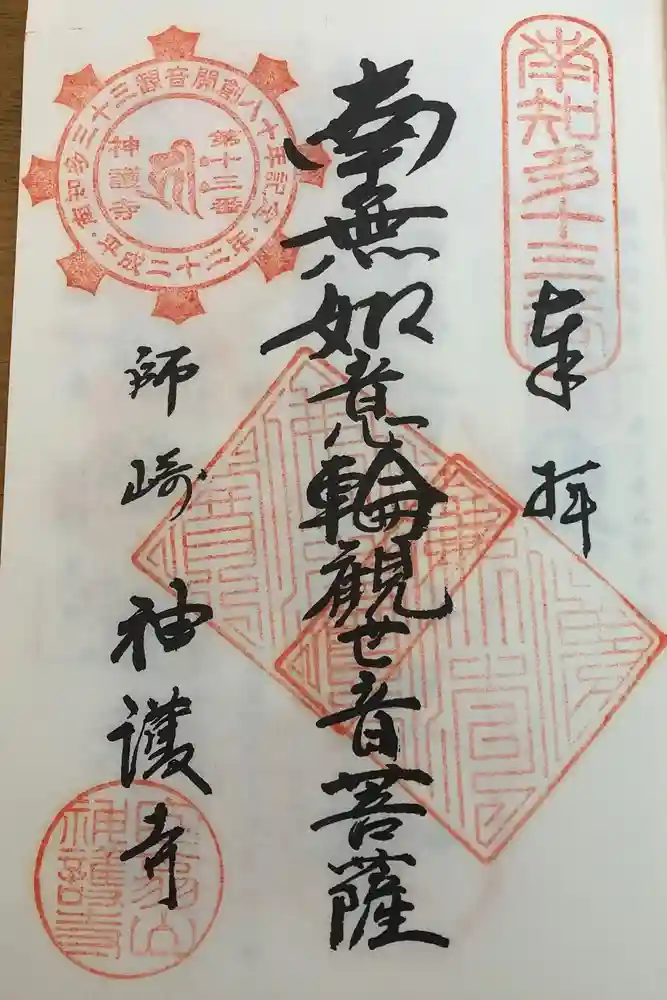 南知多十三番
奉拝
南無如意輪観世音菩薩
師崎 神護寺
南知多三十三観音開創八十年記念
平成二十二年
第十三番
神護寺
神護寺